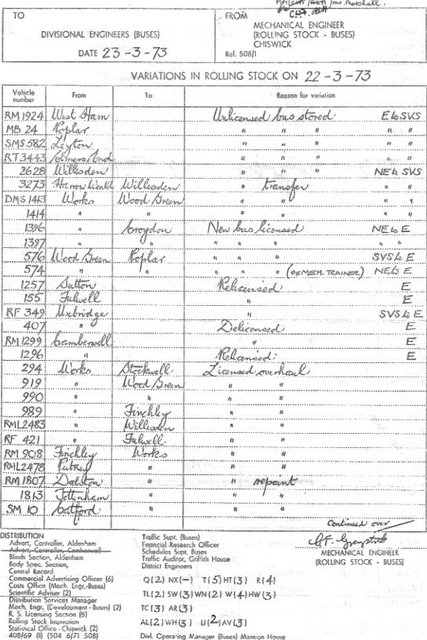 TO
DIVISIONAL ENGINEERS (BUSES)
DATE 23-3-73
FROM
MECHANICAL ENGINEER
(ROLLING STOCK - BUSES)
CHISWICK
Ref. 508/1
VARIATIONS IN ROLLING STOCK ON 22-3-73
Vehicle number From To Reason for variation
RM1924 West Ham Unlicensed bus stored E to SVS
MB 24 Poplar " " " "
SMS 582 Leyton " " " "
RT3443 Palmers/Grnd " " " "
2628 Willesden " " " NE to SVS
3273 Harrow Weald Willesden " transfer " "
DMS 1413 Works Wood Green " " " "
1414 " " " " " "
1396 " Croydon New bus licensed NE to E
1397 " " " " " " " "
576 Wood Green Poplar " " " SVS to E
574 " " " " " (EX MECH. TRAINER) NE to E
1257 Sutton Relicensed E
155 Fulwell " E
RF 349 Uxbridge " SVS to E
407 " Delicensed E
RM1299 Camberwell " E
1296 " Relicensed E
294 Works Stockwell Licensed overhaul
919 " Wood Green " "
990 " " " "
989 " Finchley " "
RML2483 " Willesden " "
RF 421 " Fulwell " "
RM 908 Finchley Works " "
RML2478 Putney " " "
RM 1807 Dalston " " repaint
1813 Tottenham " " "
SM 10 Catford " " "
Continued over
DISTRIBUTION
Advert. Controller, Aldenham
Advert. Controller, Camberwell
Blinds Section, Aldenham
Body Spec. Section,
Central Record
Commercial Advertising Officer (6)
Costs Office (Mech. Engr.-Buses)
Scientific Adviser (2)
Distribution Services Manager
Mech. Engr. (Development - Buses) (2)
R. S. Licensing Section (8)
Rolling Stock Inspection
Statistical Office - Chiswick (2)
408/69 (1) (504 6/71 508)
Traffic Supt. (Buses)
Financial Research Officer
Schedules Supt. Buses
Traffic Auditor, Griffith House
District Engineers
Q(2) NX(-) T(5) HT(3) R(4)
TL(2) SW(3) WN(2) W(4) HW(3)
TC(3) AR(3)
AL(2) WH(3) U(2) AV(3)
Divl. Operating Manager (Buses) Manson House
MECHANICAL ENGINEER
(ROLLING STOCK - BUSES)